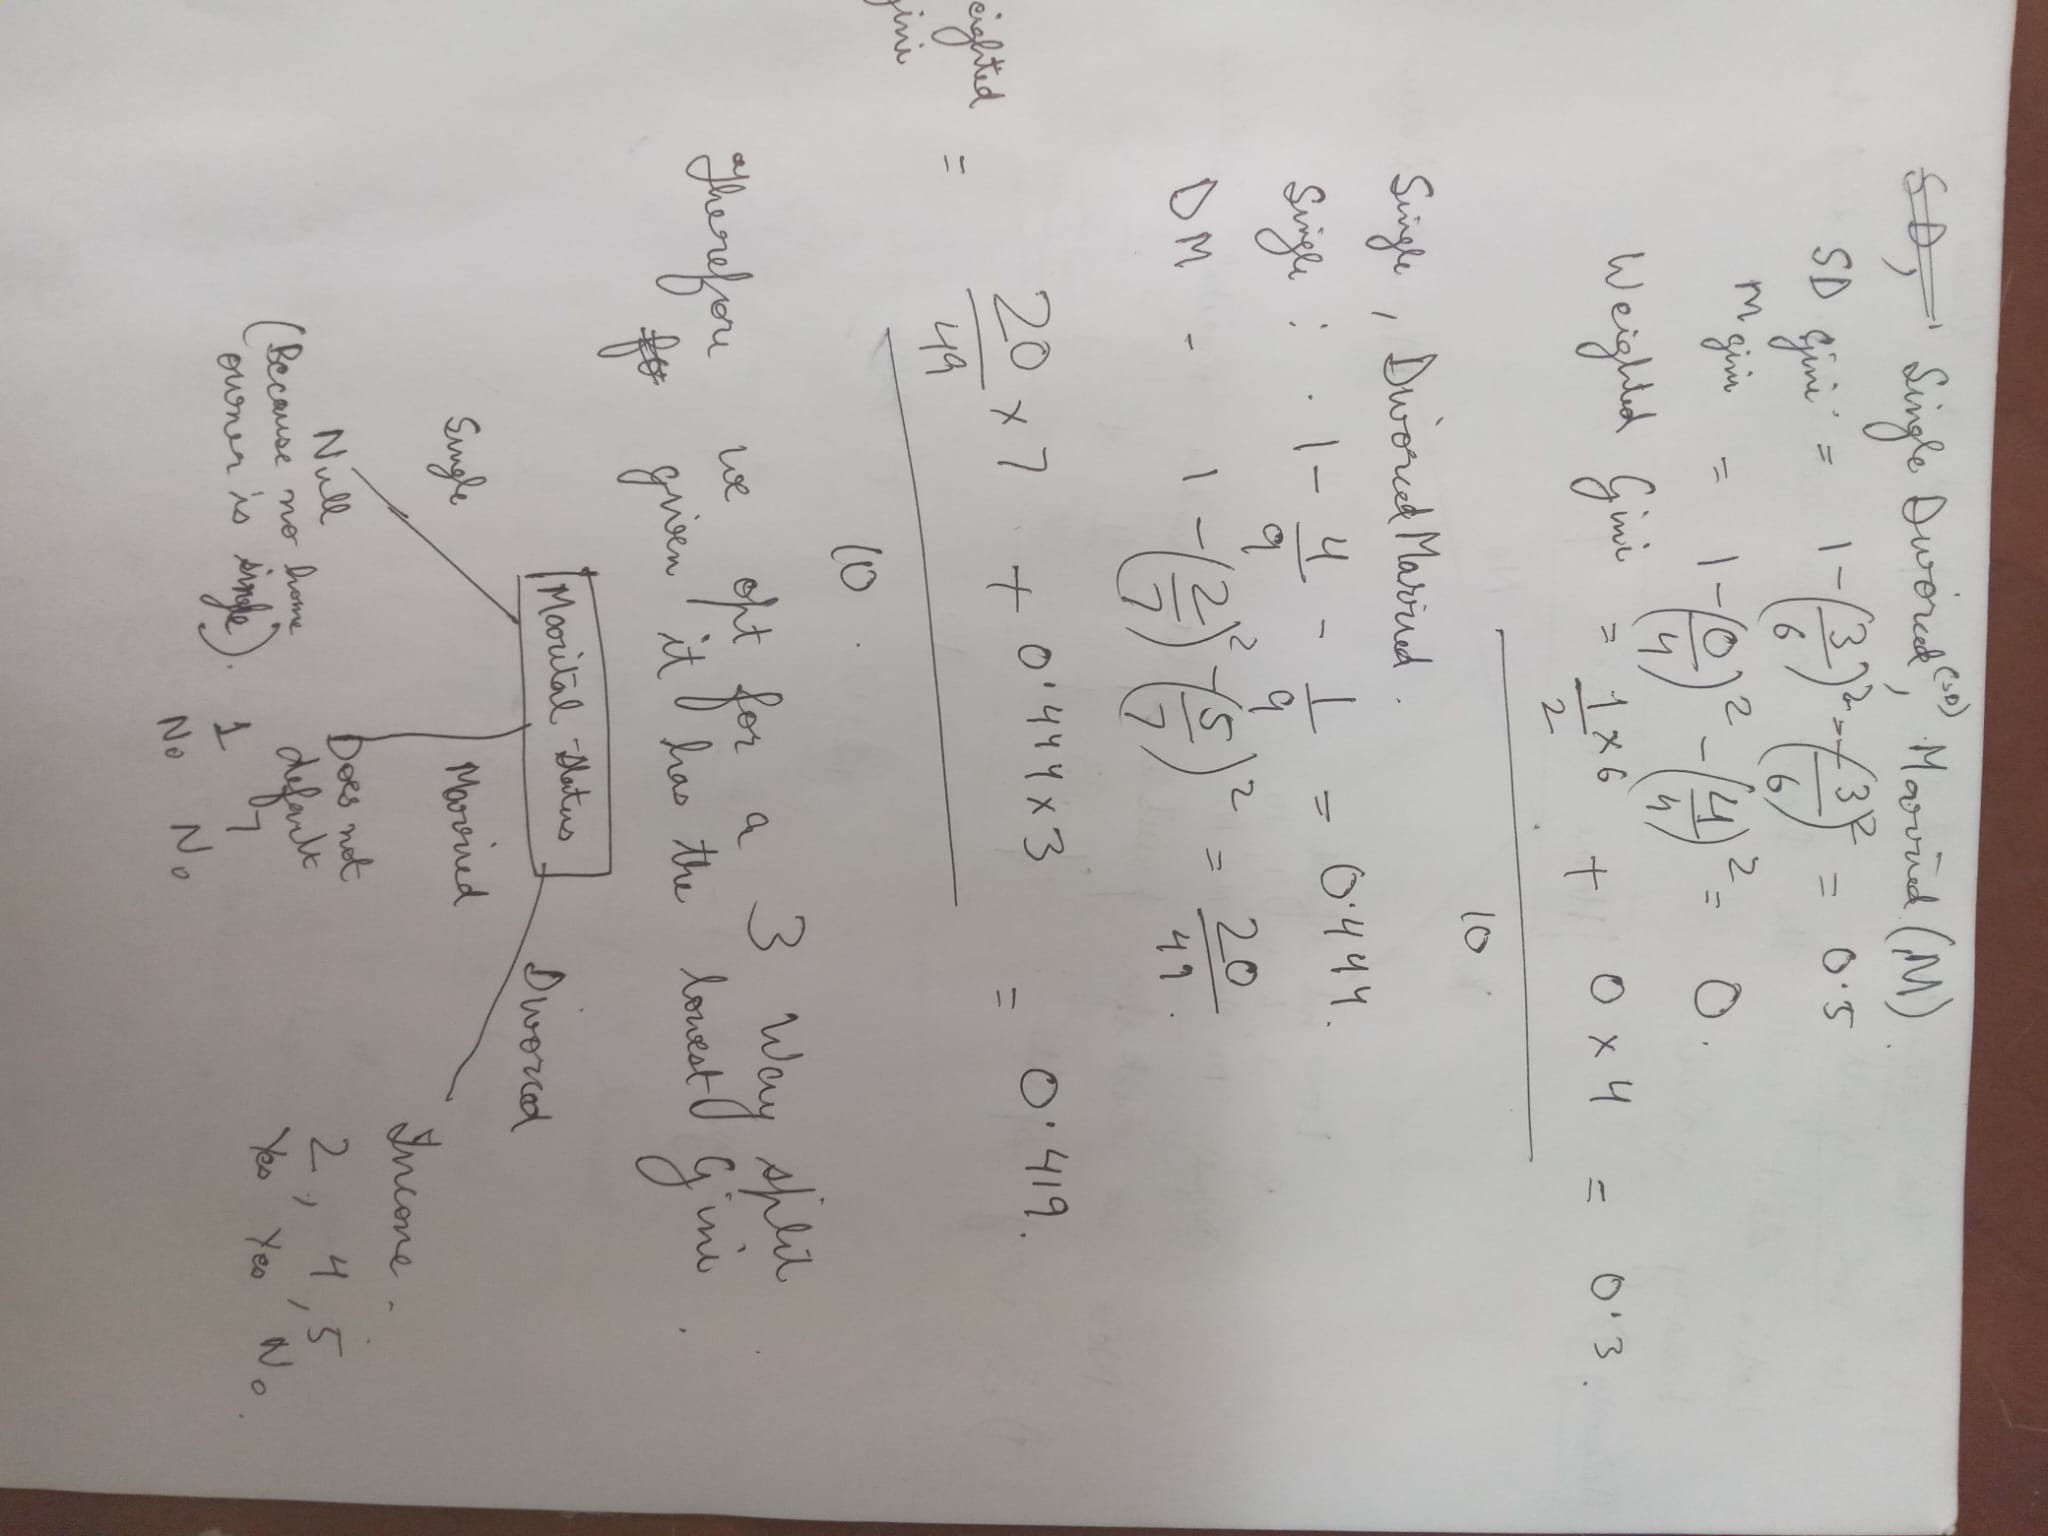 SD, Single Divorced (SD), Married (M).
SD gini = 1-(3/6)² - (3/6)² = 0.5
M gini = 1-(0/4)² - (4/4)² = 0.
Weighted Gini = (1/2 × 6 + 0 × 4)/10 = 0.3.
Single, Divorced Married.
Single : 1 - 4/9 - 1/9 = 0.444.
DM - 1 - (2/7)² - (5/7)² = 20/49.
eighted
ini = (20/49 × 7 + 0.444 × 3)/10 = 0.419.
Therefore we opt for a 3 Way split
given it has the lowest Gini.
Marital Status
Single Married Divorced
Income.
Null Does not 2, 4, 5
(Because no home default Yes Yes No.
owner is single). 1 7
No No